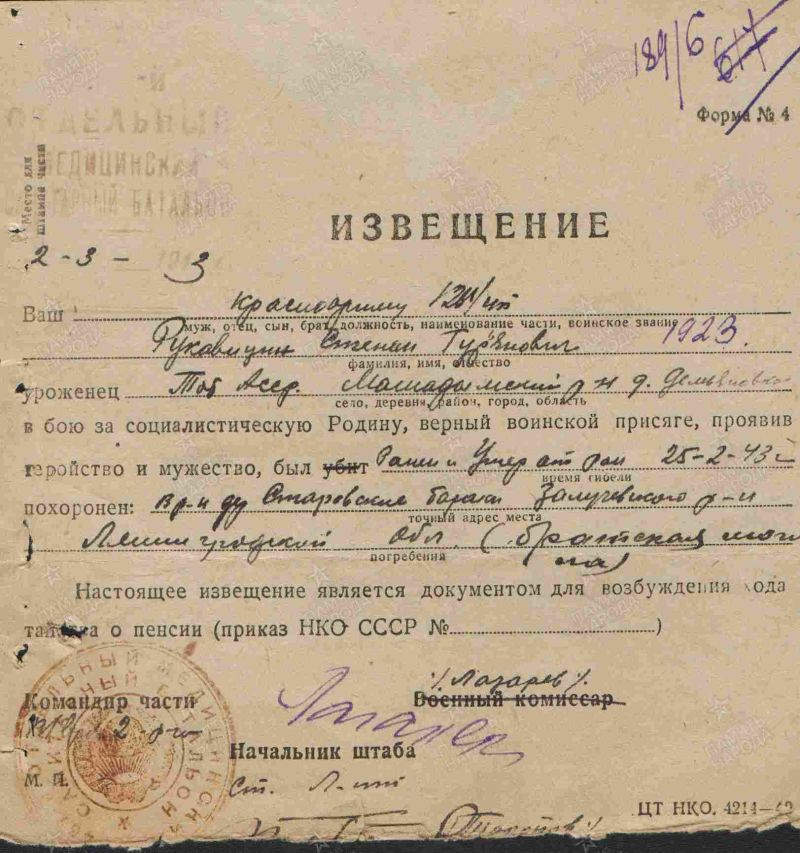 189/6 617
Форма № 4
ОТДЕЛЬНЫЙ
МЕДИЦИНСКИЙ
САНИТАРНЫЙ БАТАЛЬОН
Место для
штампа части
ИЗВЕЩЕНИЕ
2-3- 3
Ваш красноармеец
муж, отец, сын, брат, должность, наименование части, воинское звание
Рукавицин Степан Гурьянович 1923.
фамилия, имя, отчество
уроженец Тат Асср. р-н д.
село, деревня, район, город, область
в бою за социалистическую Родину, верный воинской присяге, проявив
геройство и мужество, был убит Ранен и Умер от ран 25-2-43 г
время гибели
похоронен: в р-н Залучевского р-н
точный адрес места
Ленинградской обл. (братская моги
погребения
ла)
Настоящее извещение является документом для возбуждения хода
тайства о пенсии (приказ НКО СССР № )
/Лазарев/.
Командир части Военный комиссар
Начальник штаба
М. П. Ст. Л-нт
ЦТ НКО. 4214—42